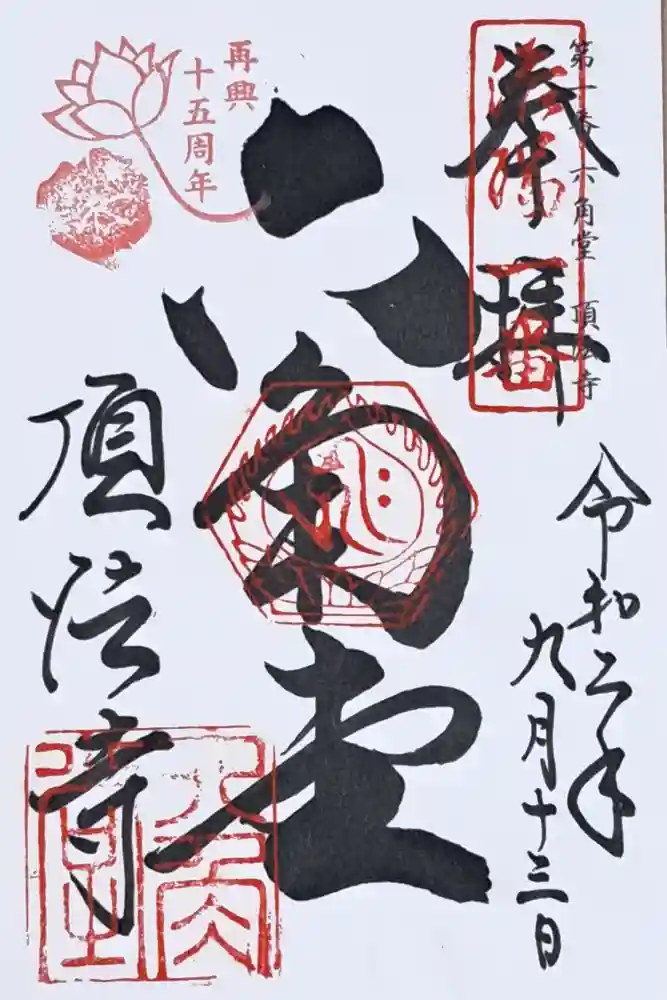 奉拝
第一番 六角堂 頂法寺
令和二年
九月十三日
六角堂
再興
十五周年
頂法寺